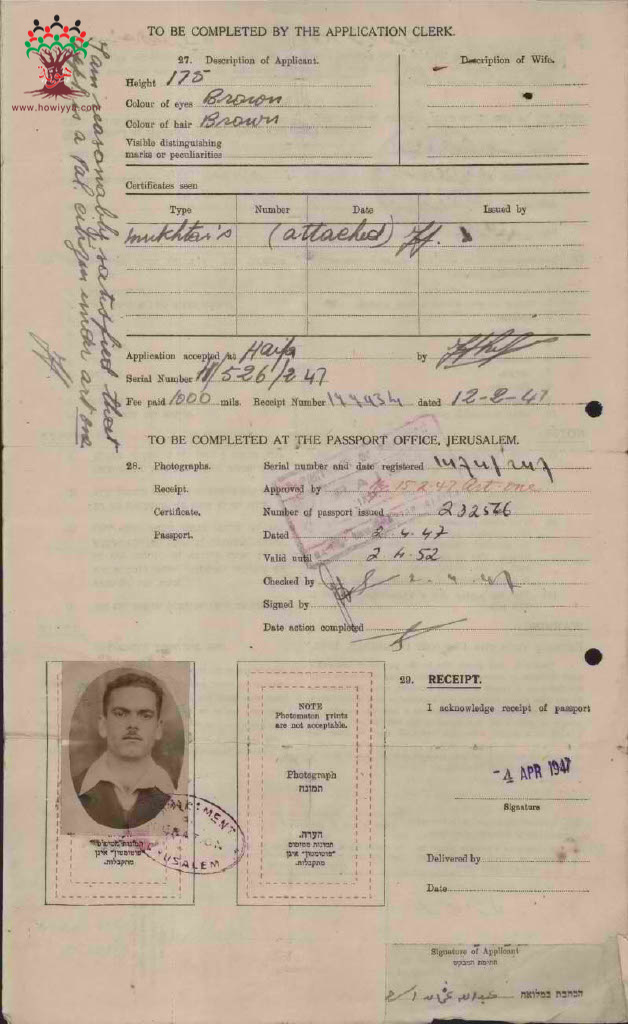 TO BE COMPLETED BY THE APPLICATION CLERK.
27. Description of Applicant.
Description of Wife.
Height 175
Colour of eyes Brown
Colour of hair Brown
Visible distinguishing
marks or peculiarities
www.howiyya.com
I am reasonably satisfied that
is a Pal. citizen under art one.
Certificates seen
Type Number Date Issued by
Mukhtar's (attached)
Application accepted at Haifa by
Serial Number H/526/2 47
Fee paid 1000 mils. Receipt Number 199934 dated 12-2-47
TO BE COMPLETED AT THE PASSPORT OFFICE, JERUSALEM.
28. Photographs. Serial number and date registered
Receipt. Approved by 15.2.47 Art one
Certificate. Number of passport issued 232566
Passport. Dated 2.4.47
Valid until 2.4.52
Checked by 2.4.47
Signed by
Date action completed
29. RECEIPT.
I acknowledge receipt of passport
-4 APR 1947
Signature
Delivered by
Date
NOTE
Photomaton prints
are not acceptable.
Photograph
תמונה
הערה.
תמונות מטיפוס
"פוטומטון" אינן
מתקבלות.
JERUSALEM
"פוטומטון" אינן
מתקבלות.
Signature of Applicant
חתימת המבקש
عبدالله